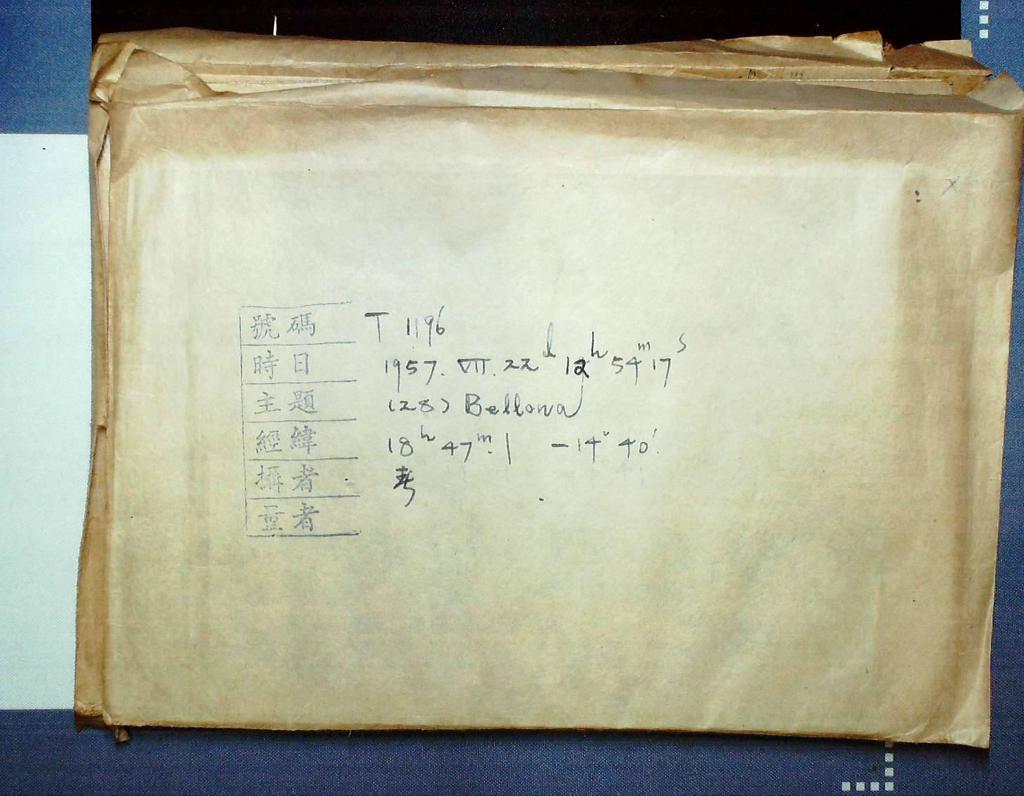 號碼 T 1196
時日 1957. VII. 22ᵈ 12ʰ 54ᵐ 17ˢ
主題 (28) Bellona
經緯 18ʰ 47ᵐ.1 -14° 40′
攝者
量者